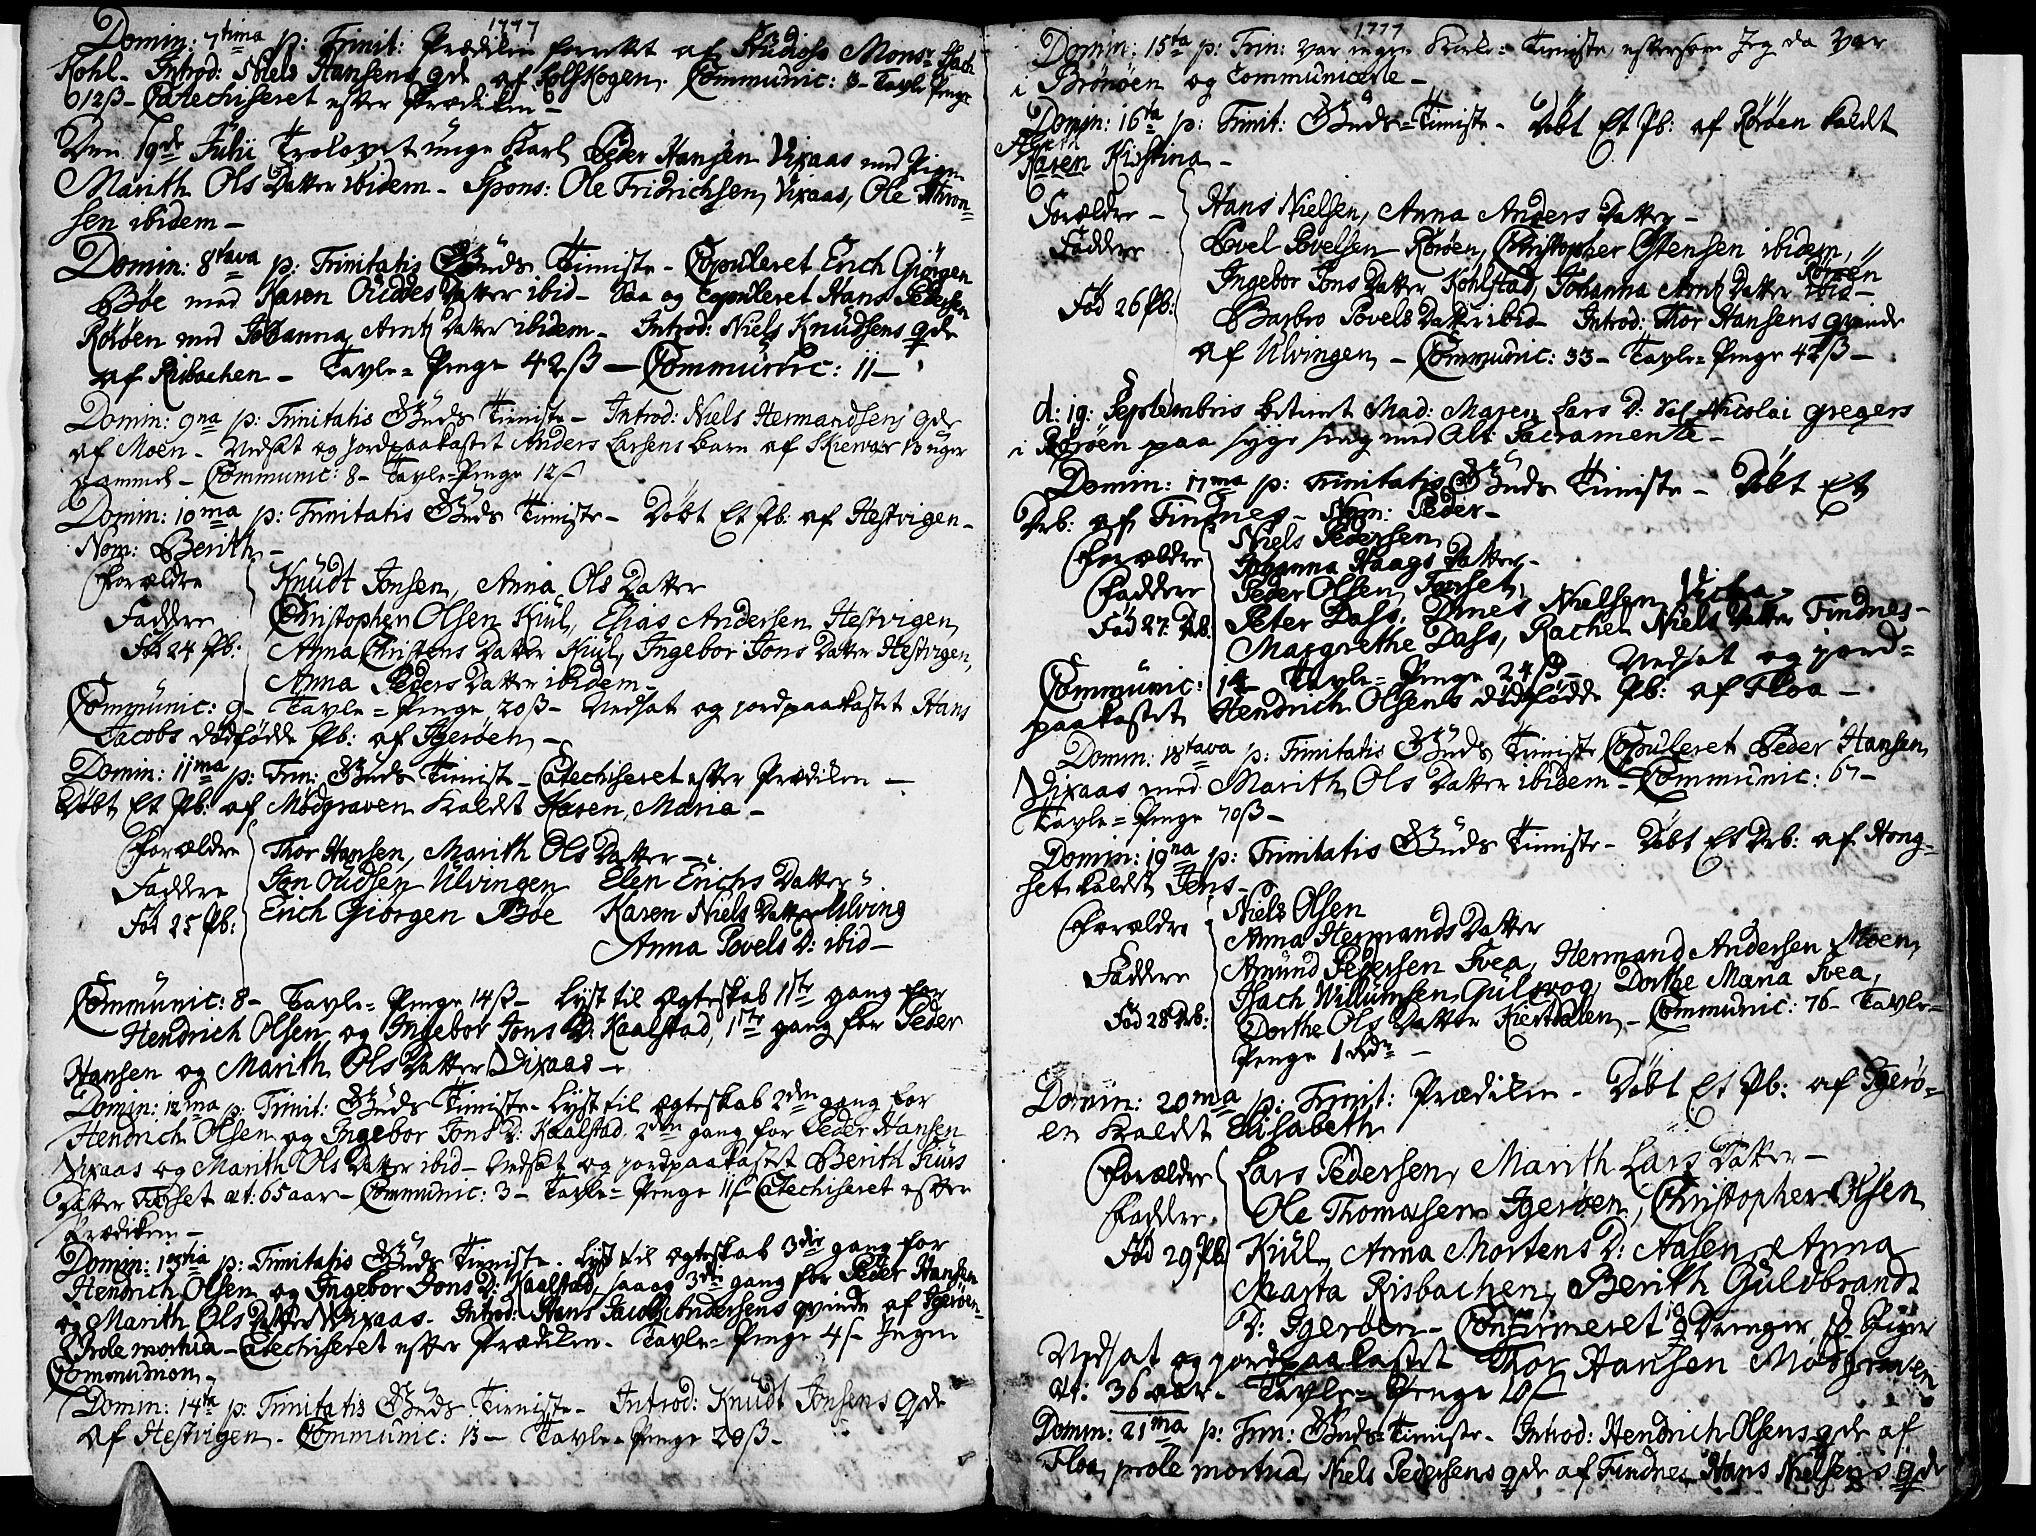 1777
Domin: 7tima p: Trinit: Prædiken forrettet af Studioso Monsr Isach
Kohl. Introd: Niels Hansens qde af Kolfskogen. Communic: 8 – Tavle Penge
12ß – Catechiseret efter Prædiken –
Den 19de Julii Trolovet unge Karl Peder Hansen Vixaas med Pigen
Marith Ols Datter ibidem – Spons: Ole Fridrichsen Vixaas, Ole Thron-
sen ibidem –
Domin: 8tava p: Trinitatis Guds Tieniste – Copuleret Erich Giørgen
Bøe med Karen Oudes Datter ibid – Saa og Copuleret Hans Pedersen
Rørøen med Johanna Arntz Datter ibidem – Introd: Niels Knudsens qde
af Risbachen – Tavle-Penge 42ß – Communic: 11 –
Domin: 9na p: Trinitatis Guds Tieniste – Introd: Niels Hermandsens qde
af Moen – Vedsat og jordpaakastet Anders Larsens barn af Skiervær 13 uger
gammel – Communic: 8 – Tavle-Penge 12ß
Domin: 10ma p: Trinitatis Guds Tieniste – Døbt Et Pb: af Hestvigen –
Nom: Berith –
Forældre Knudt Jonsen, Anna Ols Datter
Faddere Christopher Olsen Kiul, Elias Andersen Hestvigen,
Fød 24 Pb: Anna Christens Datter Kiul, Ingebor Jons Datter Hestvigen,
Anna Peders Datter ibidem –
Communic: 9 – Tavle-Penge 20ß – Vedsat og jordpaakastet Hans
Jacobs dødfødde Pb: af Igerøen –
Domin: 11ma p: Trin: Guds Tieniste – Catechiseret efter Prædiken –
Døbt Et Pb: af Mødgraven Kaldet Karen Maria –
Forældre Thor Hansen, Marith Ols Datter –
Faddere Jon Oudsen Ulvingen Elen Erichs Datter
Fød 25 Pb: Erich Giørgen Bøe Karen Niels Datter Ulving
Anna Povels D: ibid –
Communic: 8 – Tavle-Penge 14ß – Lyst til Egteskab 1ste gang for
Hendrich Olsen og Ingebor Jons D: Kaalstad, 1ste gang for Peder
Hansen og Marith Ols Datter Vixaas –
Domin: 12ma p: Trinit: Guds Tieniste – Lyst til Egteskab 2den gang for
Hendrich Olsen og Ingebor Jons D: Kaalstad, 2den gang for Peder Hansen
Vixaas og Marith Ols Datter ibid – Vedsat og jordpaakastet Berith Siurs
Datter Forset æt: 65 aar – Communic: 3 – Tavle-Penge 11ß Catechiseret efter
Prædiken –
Domin: 13tia p: Trinitatis Guds Tieniste. Lyst til Egteskab 3die gang for
Hendrich Olsen og Ingebor Jons D: Kaalstad, saaog 3die gang for Peder Hansen
og Marith Ols Datter Vixaas. Introd: Hans Jacob Andersens qvinde af Igerøen
Prole mortua – Catechiseret efter Prædiken – Tavle-Penge 4ß Ingen
Communion –
Domin: 14ta p: Trinitatis Guds Tieniste – Introd: Knudt Jonsens qde
af Hestvigen – Communic: 13 – Tavle-Penge 20ß –
1777
Domin: 15ta p: Trin: var ingen Kirke-Tieniste, eftersom Jeg da var
i Brønøen og Communicerte –
Domin: 16ta p: Trinit: Guds-Tieniste – Døbt Et Pb: af Rørøen kaldet
Karen Kirstina –
Forældre – Hans Nielsen, Anna Anders Datter –
Faddere Povel Povelsen Rørøen, Christopher Ostensen ibidem,
Ingebor Jons Datter Kohlstad, Johanna Arntz Datter Rørøen
Fød 26 Pb: Barbro Povels Datter ibid – Introd: Thor Hansens qvinde
af Ulvingen – Communic: 33 – Tavle-Penge 42ß –
d: 19: Septembris betient Mad: Maren Lars D: Sal: Nicolai Gregers
i Rørøen paa syge seng med Alt: Sacramente –
Domin: 17ma p: Trinitatis Guds Tieniste – Døbt Et
Drb: af Tindnes – Nom: Peder –
Forældre Niels Pedersen
Johanna Haags Datter –
Faddere Peder Olsen Forset,
Fød 27: Drb: Peter Dass, Dines Nielsen Vicka
Margrethe Dass, Rachel Niels Datter Tindnes –
Communic: 14 – Tavle-Penge 24ß – Vedsat og jord-
paakastet Hendrich Olsens dødfødde Pb: af Floa –
Domin: 18tava p: Trinitatis Guds Tieniste Copuleret Peder Hansen
Vixaas med Marith Ols Datter ibidem – Communic: 67 –
Tavle-Penge 70ß –
Domin: 19na p: Trinitatis Guds Tieniste – Døbt Et Drb: af Hong-
set kaldet Jens –
Forældre Niels Olsen
Anna Hermands Datter
Faddere Amund Pedersen Tvea, Hermand Andersen Moen,
Isach Willumsen Gulsvog, Dorthe Maria Tvea,
Fød 28 Drb: Dorthe Ols Datter – Communic: 76 – Tavle-
Penge 1 Rdr –
Domin: 20ma p: Trinit: Prædiken – Døbt Et Pb: af Igerø-
en Kaldet Elisabeth
Forældre Lars Pedersen, Marith Lars Datter –
Faddere Ole Thomæsen Igerøen, Christopher Olsen
Fød 29 Pb Kiul, Anna Mortens D: Aasen, Anna
Marta Risbachen, Berith Guldbrands
D: Igerøen – Confirmeret 10 Drenger, Piger
Vedsat og jordpaakastet Thor Hansen Mødgraven
æt: 36 aar – Tavle-Penge 10ß
Domin: 21ma p: Trin: Guds-Tieniste – Introd: Hendrich Olsens qde af
Floa, prole mortua, Niels Pedersens qde af Tindnes, Hans Nielsens qde